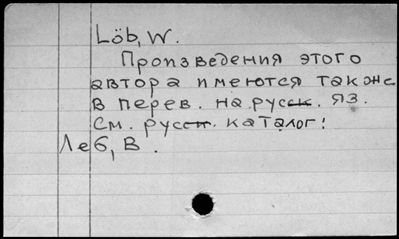 Löb, W.
Произведения этого
автора имеются также
в перев. на русск. яз.
См. русск. каталог:
Леб, В.